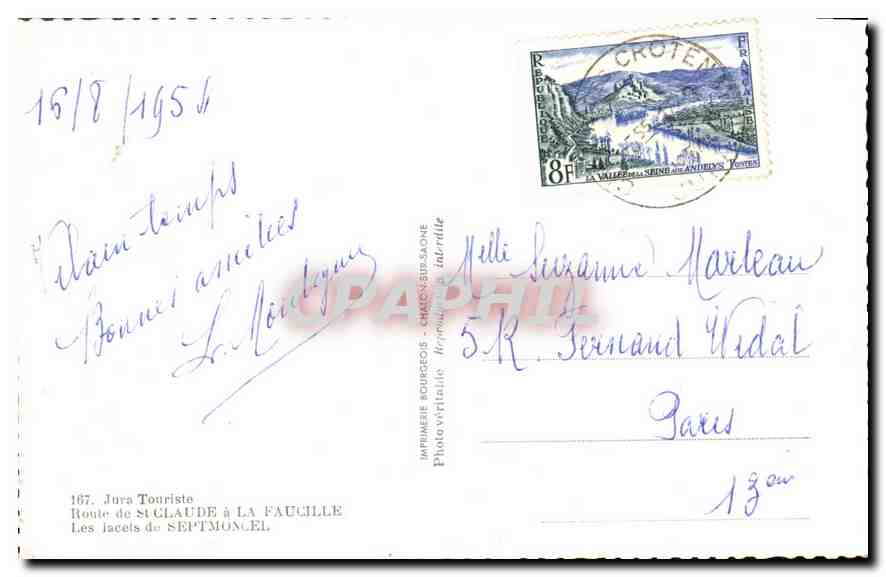 16/8/1954
Vilain temps
Bonnes amitiés
167. Jura Touriste
Route de St CLAUDE à LA FAUCILLE
Les lacets de SEPTMONCEL
IMPRIMERIE BOURGEOIS - CHALON-SUR-SAONE
Photo véritable Reproduction interdite
CPAPHIL
CROTEN
RÉPUBLIQUE FRANÇAISE
8F
LA VALLÉE DE LA SEINE AUX ANDELYS POSTES
Melle Suzanne Marteau
5 R. Fernand Widal
Paris
13em